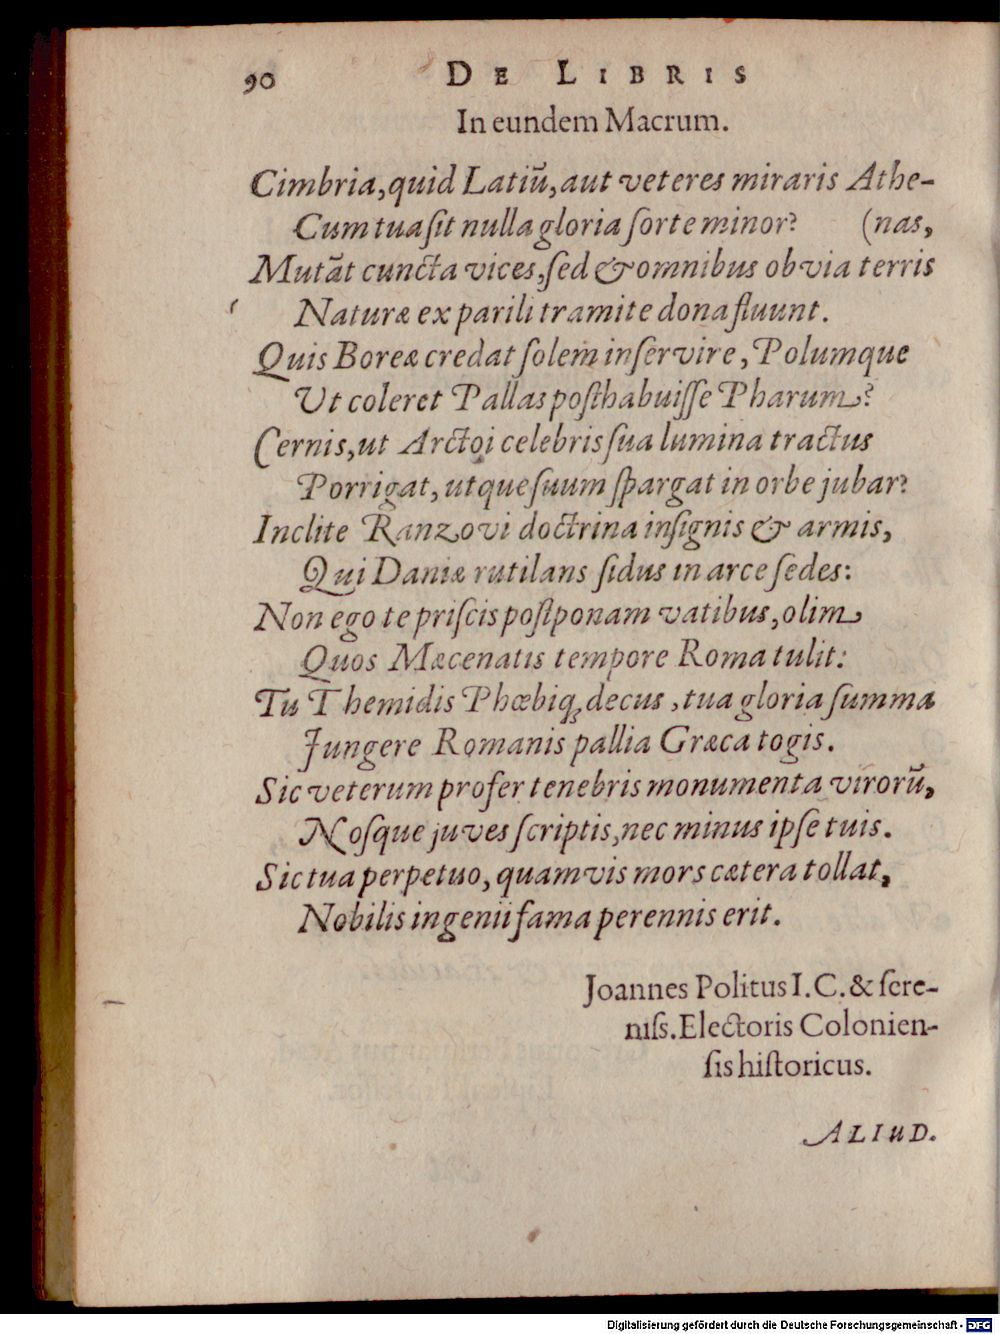 90 DE LIBRIS
In eundem Macrum.
Cimbria, quid Latiū, aut veteres miraris Athe-
Cum tua ſit nulla gloria ſorte minor? (nas,
Mutāt cuncta vices, ſed & omnibus obvia terris
Naturæ ex parili tramite dona fluunt.
Quis Boreæ credat ſolem inſervire, Polumque
Ut coleret Pallas poſthabuiſſe Pharum?
Cernis, ut Arctoi celebris ſua lumina tractus
Porrigat, utque ſuum ſpargat in orbe jubar?
Inclite Ranzovi doctrina inſignis & armis,
Qui Daniæ rutilans ſidus in arce ſedes:
Non ego te priſcis poſtponam vatibus, olim
Quos Mæcenatis tempore Roma tulit:
Tu Themidis Phœbiq; decus, tua gloria ſumma
Jungere Romanis pallia Græca togis.
Sic veterum profer tenebris monumenta virorū,
Noſque juves ſcriptis, nec minus ipſe tuis.
Sic tua perpetuo, quamvis mors cætera tollat,
Nobilis ingenii fama perennis erit.
Joannes Politus I.C. & ſere-
niſſ. Electoris Colonien-
ſis hiſtoricus.
ALIUD.
Digitalisierung gefördert durch die Deutsche Forschungsgemeinschaft - DFG